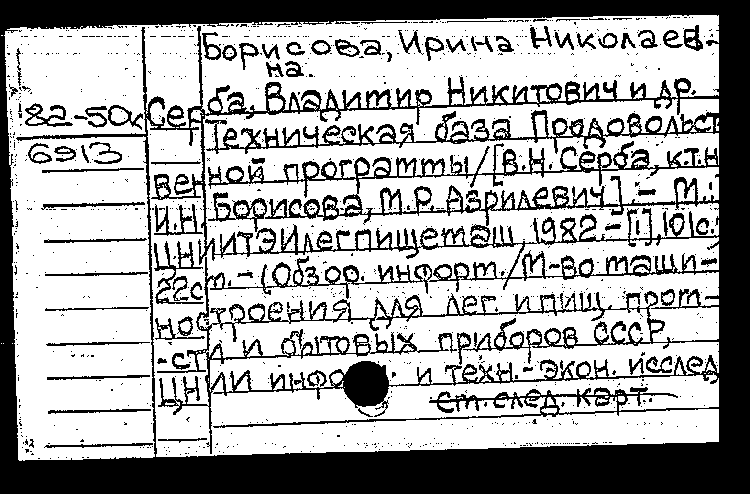 Борисова, Ирина Николаев-
на.
82-50к Серба, Владимир Никитович и др.
6913 Техническая база Продовольст
венной программы/[В.Н. Серба, к.т.н
И.Н. Борисова, М.Р. Азрилевич]. - М.:
ЦНИИТЭИлегпищемаш, 1982.-[1],101с.;
22см.-(Обзор. информ./М-во маши-
ностроения для лег. и пищ. пром-
-сти и бытовых приборов СССР,
ЦНИИ информ. и техн.-экон. исслед
см. след. карт.